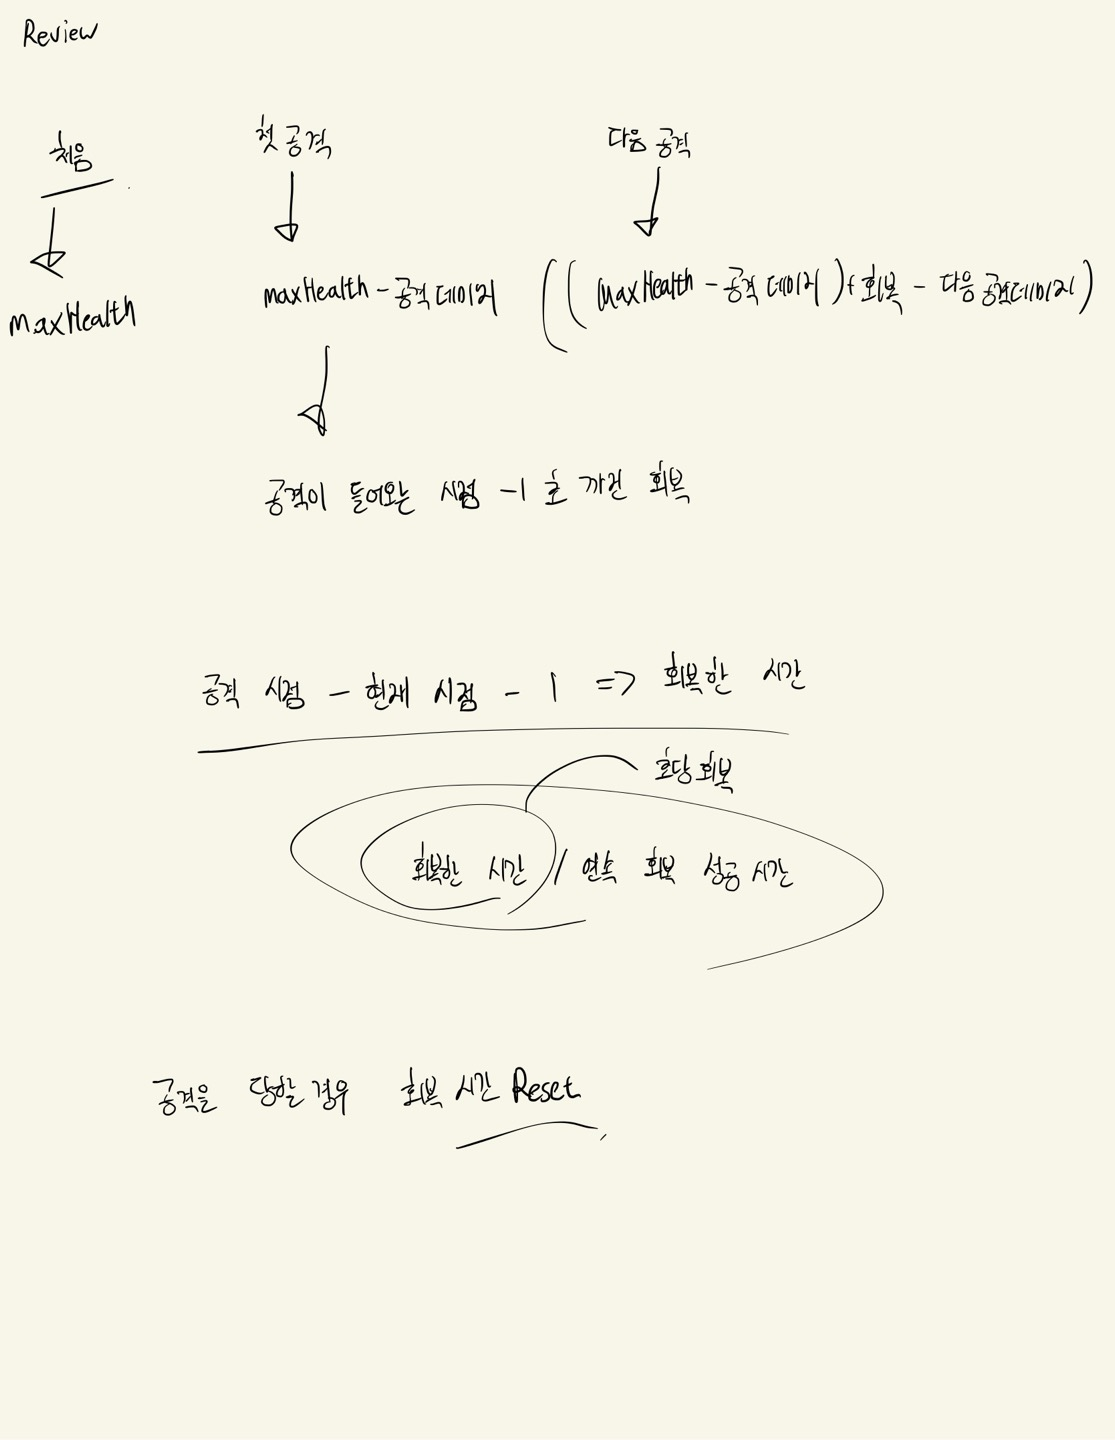 Review
처음
첫 공격
다음 공격
maxHealth
maxHealth - 공격 데미지
((maxHealth - 공격 데미지) + 회복 - 다음 공격데미지)
공격이 들어오는 시점 -1 초 까진 회복
공격 시점 - 현재 시점 - 1 => 회복한 시간
초당 회복
회복한 시간 / 연속 회복 성공 시간
공격을 당할 경우 회복 시간 Reset